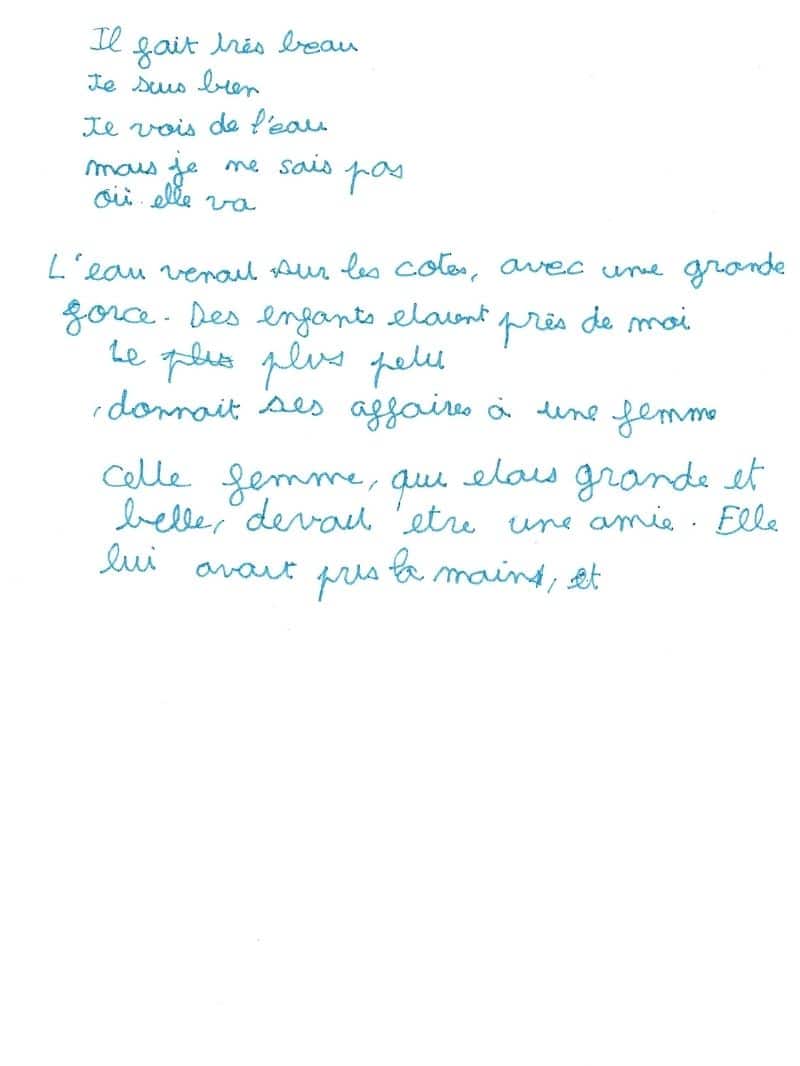 Il fait très beau
Je suis bien
Je vois de l'eau
mais je ne sais pas
où elle va
L'eau venait sur les cotes, avec une grande
force. Des enfants etaient près de moi
Le plus plus petit
donnait ses affaires à une femme
Cette femme, qui etais grande et
belle, devait etre une amie. Elle
lui avait pris la mains, et